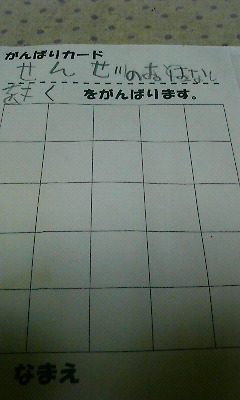 がんばりカード
せんせいのおはなし
をきく をがんばります。
なまえ